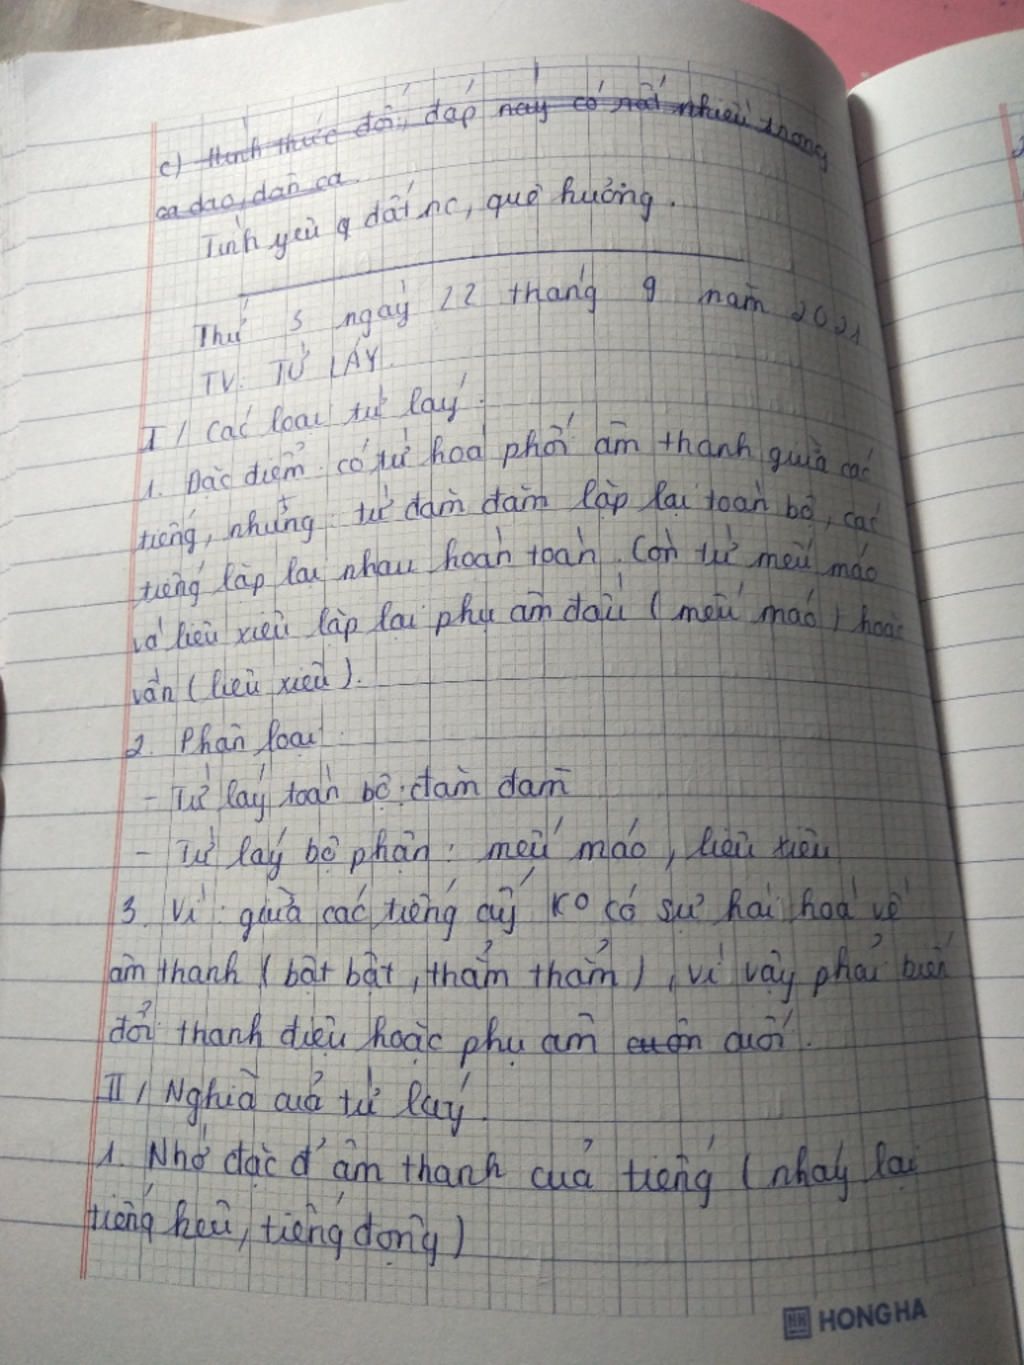 c) Hình thức đối, đáp này có rất nhiều trong
ca dao, dân ca.
Tình yêu q đất nc, quê hương.
Thứ 3 ngày 22 tháng 9 năm 2021
TV. TỪ LÁY.
I/ Các loại từ láy.
1. Đặc điểm: có từ hoà phối âm thanh giữa các
tiếng, nhưng: từ đăm đăm lặp lại toàn bộ, các
tiếng lặp lại nhau hoàn toàn. Còn từ mếu máo
và liêu xiêu lặp lại phụ âm đầu (mếu máo) hoặc
vần (liêu xiêu).
2. Phân loại:
- Từ láy toàn bộ: đăm đăm
- Từ láy bộ phận: mếu máo, liêu xiêu
3. Vì: giữa các tiếng ấy ko có sự hài hoà về
âm thanh (bật bật, thẳm thẳm), vì vậy phải biến
đổi thanh điệu hoặc phụ âm cuôn cuối.
II/ Nghĩa của từ láy.
1. Nhờ đặc đ' âm thanh của tiếng (nhạy lại
tiếng kêu, tiếng động)
HONG HA